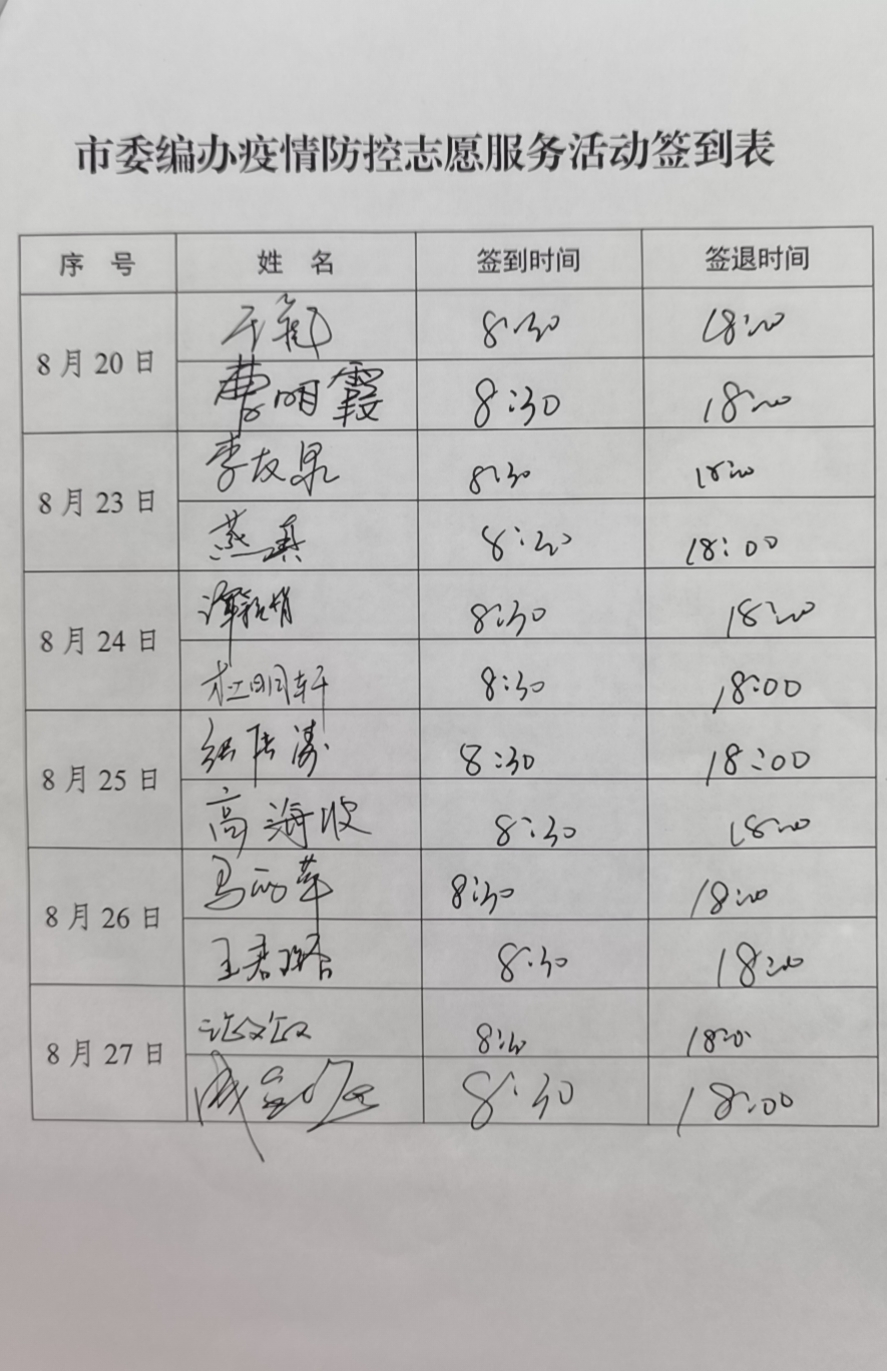 市委编办疫情防控志愿服务活动签到表
序 号 姓 名 签到时间 签退时间
8月20日 8:30 18:00
曹明霞 8:30 18:00
8月23日 李友泉 8:30 18:00
燕真 8:30 18:00
8月24日 8:30 18:00
杜明轩 8:30 18:00
8月25日 8:30 18:00
高海波 8:30 18:00
8月26日 马丽华 8:30 18:00
王君 8:30 18:00
8月27日 8:30 18:00
8:30 18:00